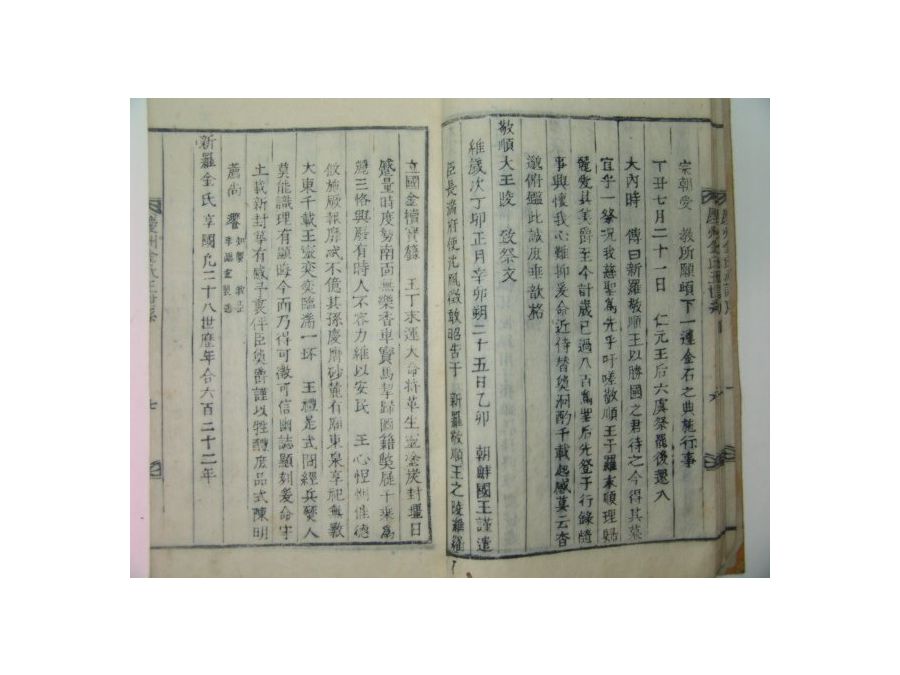 宗朝受 敎所願頉下一遵金石之典施行事
丁丑七月二十一日 仁元王后六虞祭罷後還入
大內時 傳曰新羅敬順王以勝國之君待之今得其墓
宜乎一祭况我慈聖爲先乎吁嗟敬順王于羅末順理歸
麗爰其美爵至今計歲已過八百
事興懷我心難抑爰命近侍替奠泂酌千載起感墓云杳
邈俯鑑此誠庶垂歆格
敬順大王陵 致祭文
維歲次丁卯正月辛卯朔二十五日乙卯 朝鮮國王謹遣
臣長湍府使沈 敢昭告于 新羅敬順王之陵維羅
立國金樻寶籙 王丁末運大命將革生靈塗炭封壃日
蹙量時度勢南面無樂香車寶馬挈歸圖籍 千乘爲
麗三恪與 有時人不容力維以安民 王心怛惻惟德
攸施厥報靡忒不億其孫慶
大東千載王靈奕奕臨湍一抔 王禮是式間經兵燹人
莫能識理有顯晦今而乃得可徵可信幽誌顯刻爰命守
土載新封 有感予衷伴臣奠爵謹以牲醴庶品式陳明
薦尙 饗
新羅金氏享國凡三十八世歷年合六百二十二年
七